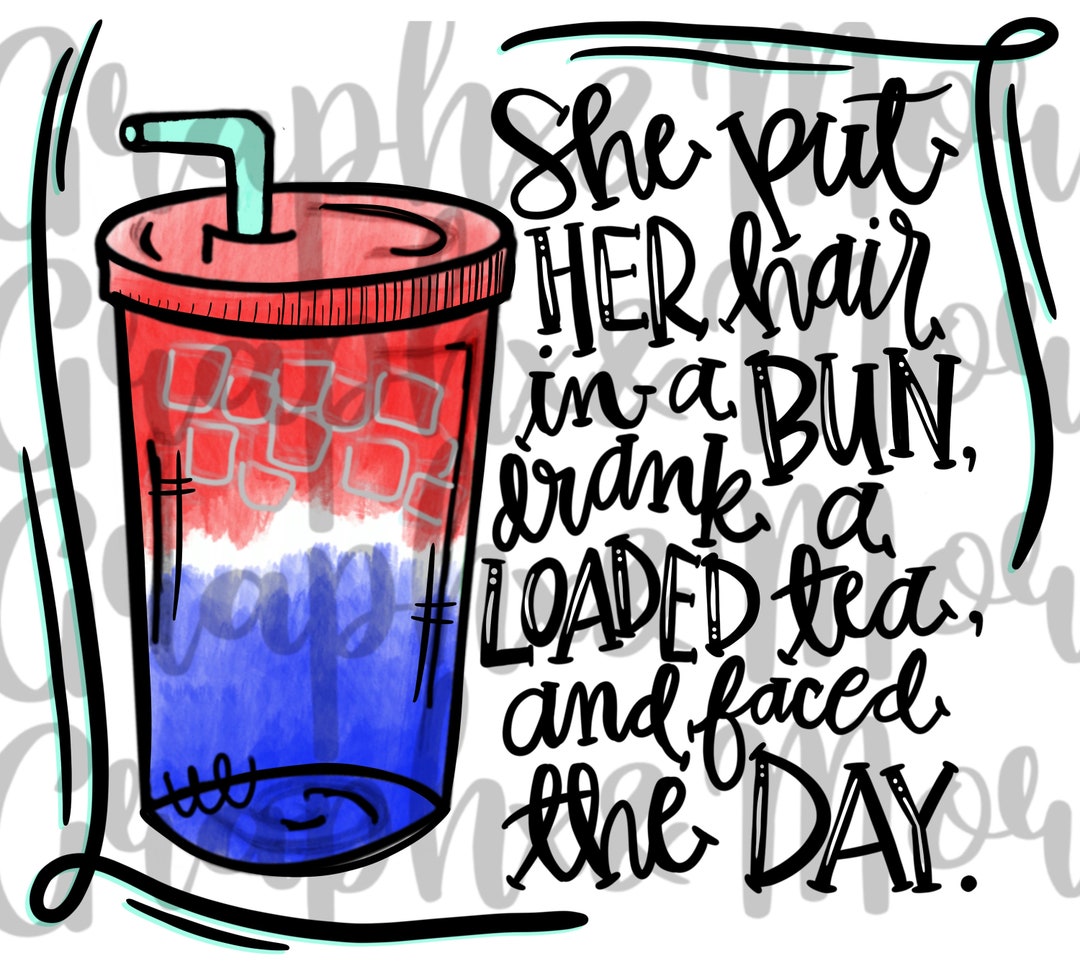 She put
HER hair
in a BUN,
drank a
LOADED tea,
and faced
the DAY.
Graphx& Mor
Graphx& Mor
Graphx& Mor
Graphx& Mor